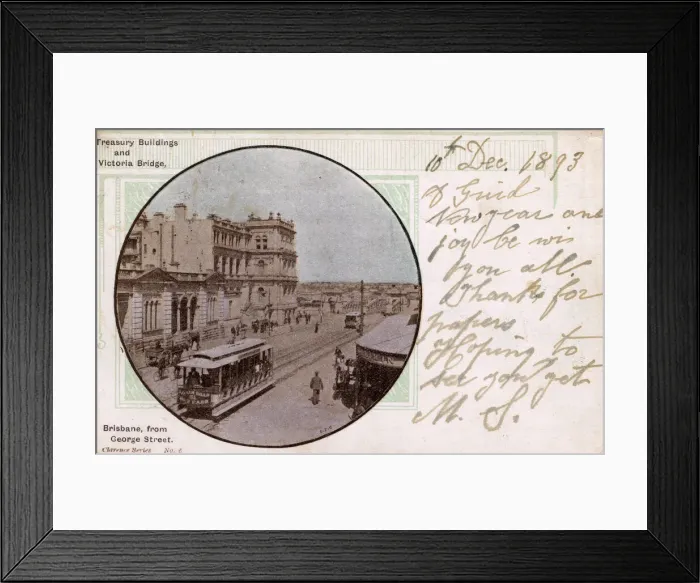 Treasury Buildings
and
Victoria Bridge,
10th Dec. 1893
New year and
joy be wis
you all.
Thanks for
papers
Hoping to
see you yet
M. S.
Brisbane, from
George Street.
Clarence Series No. 6